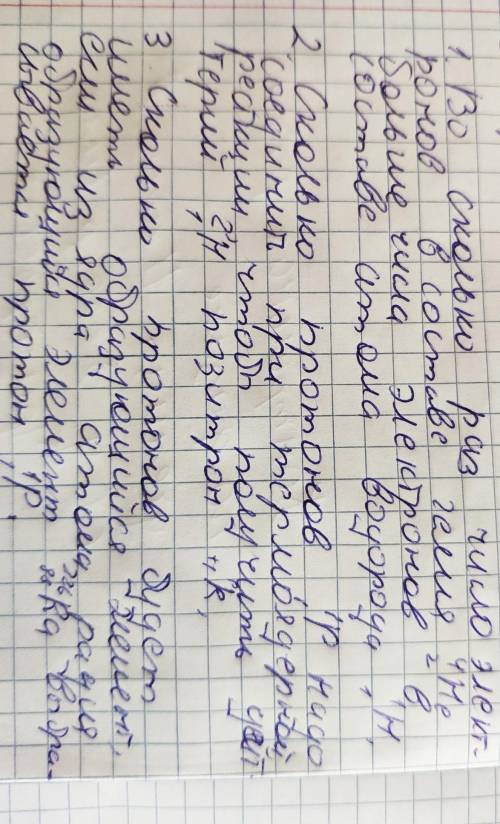 1. Во сколько раз число элект-
ронов в составе гелия ⁴₂He
больше числа электронов в
составе атома водорода ¹₁H,
2. Сколько протонов ¹₁p надо
соединить при термоядерной
реакции чтобы получить дейт-
терий ²₁H, позитрон
3 Сколько протонов будет
иметь образующийся элемент,
если из ядра атома радия
образующийся элемент ²²⁶₈₈Ra выбра-
сывается протон ¹₁p.